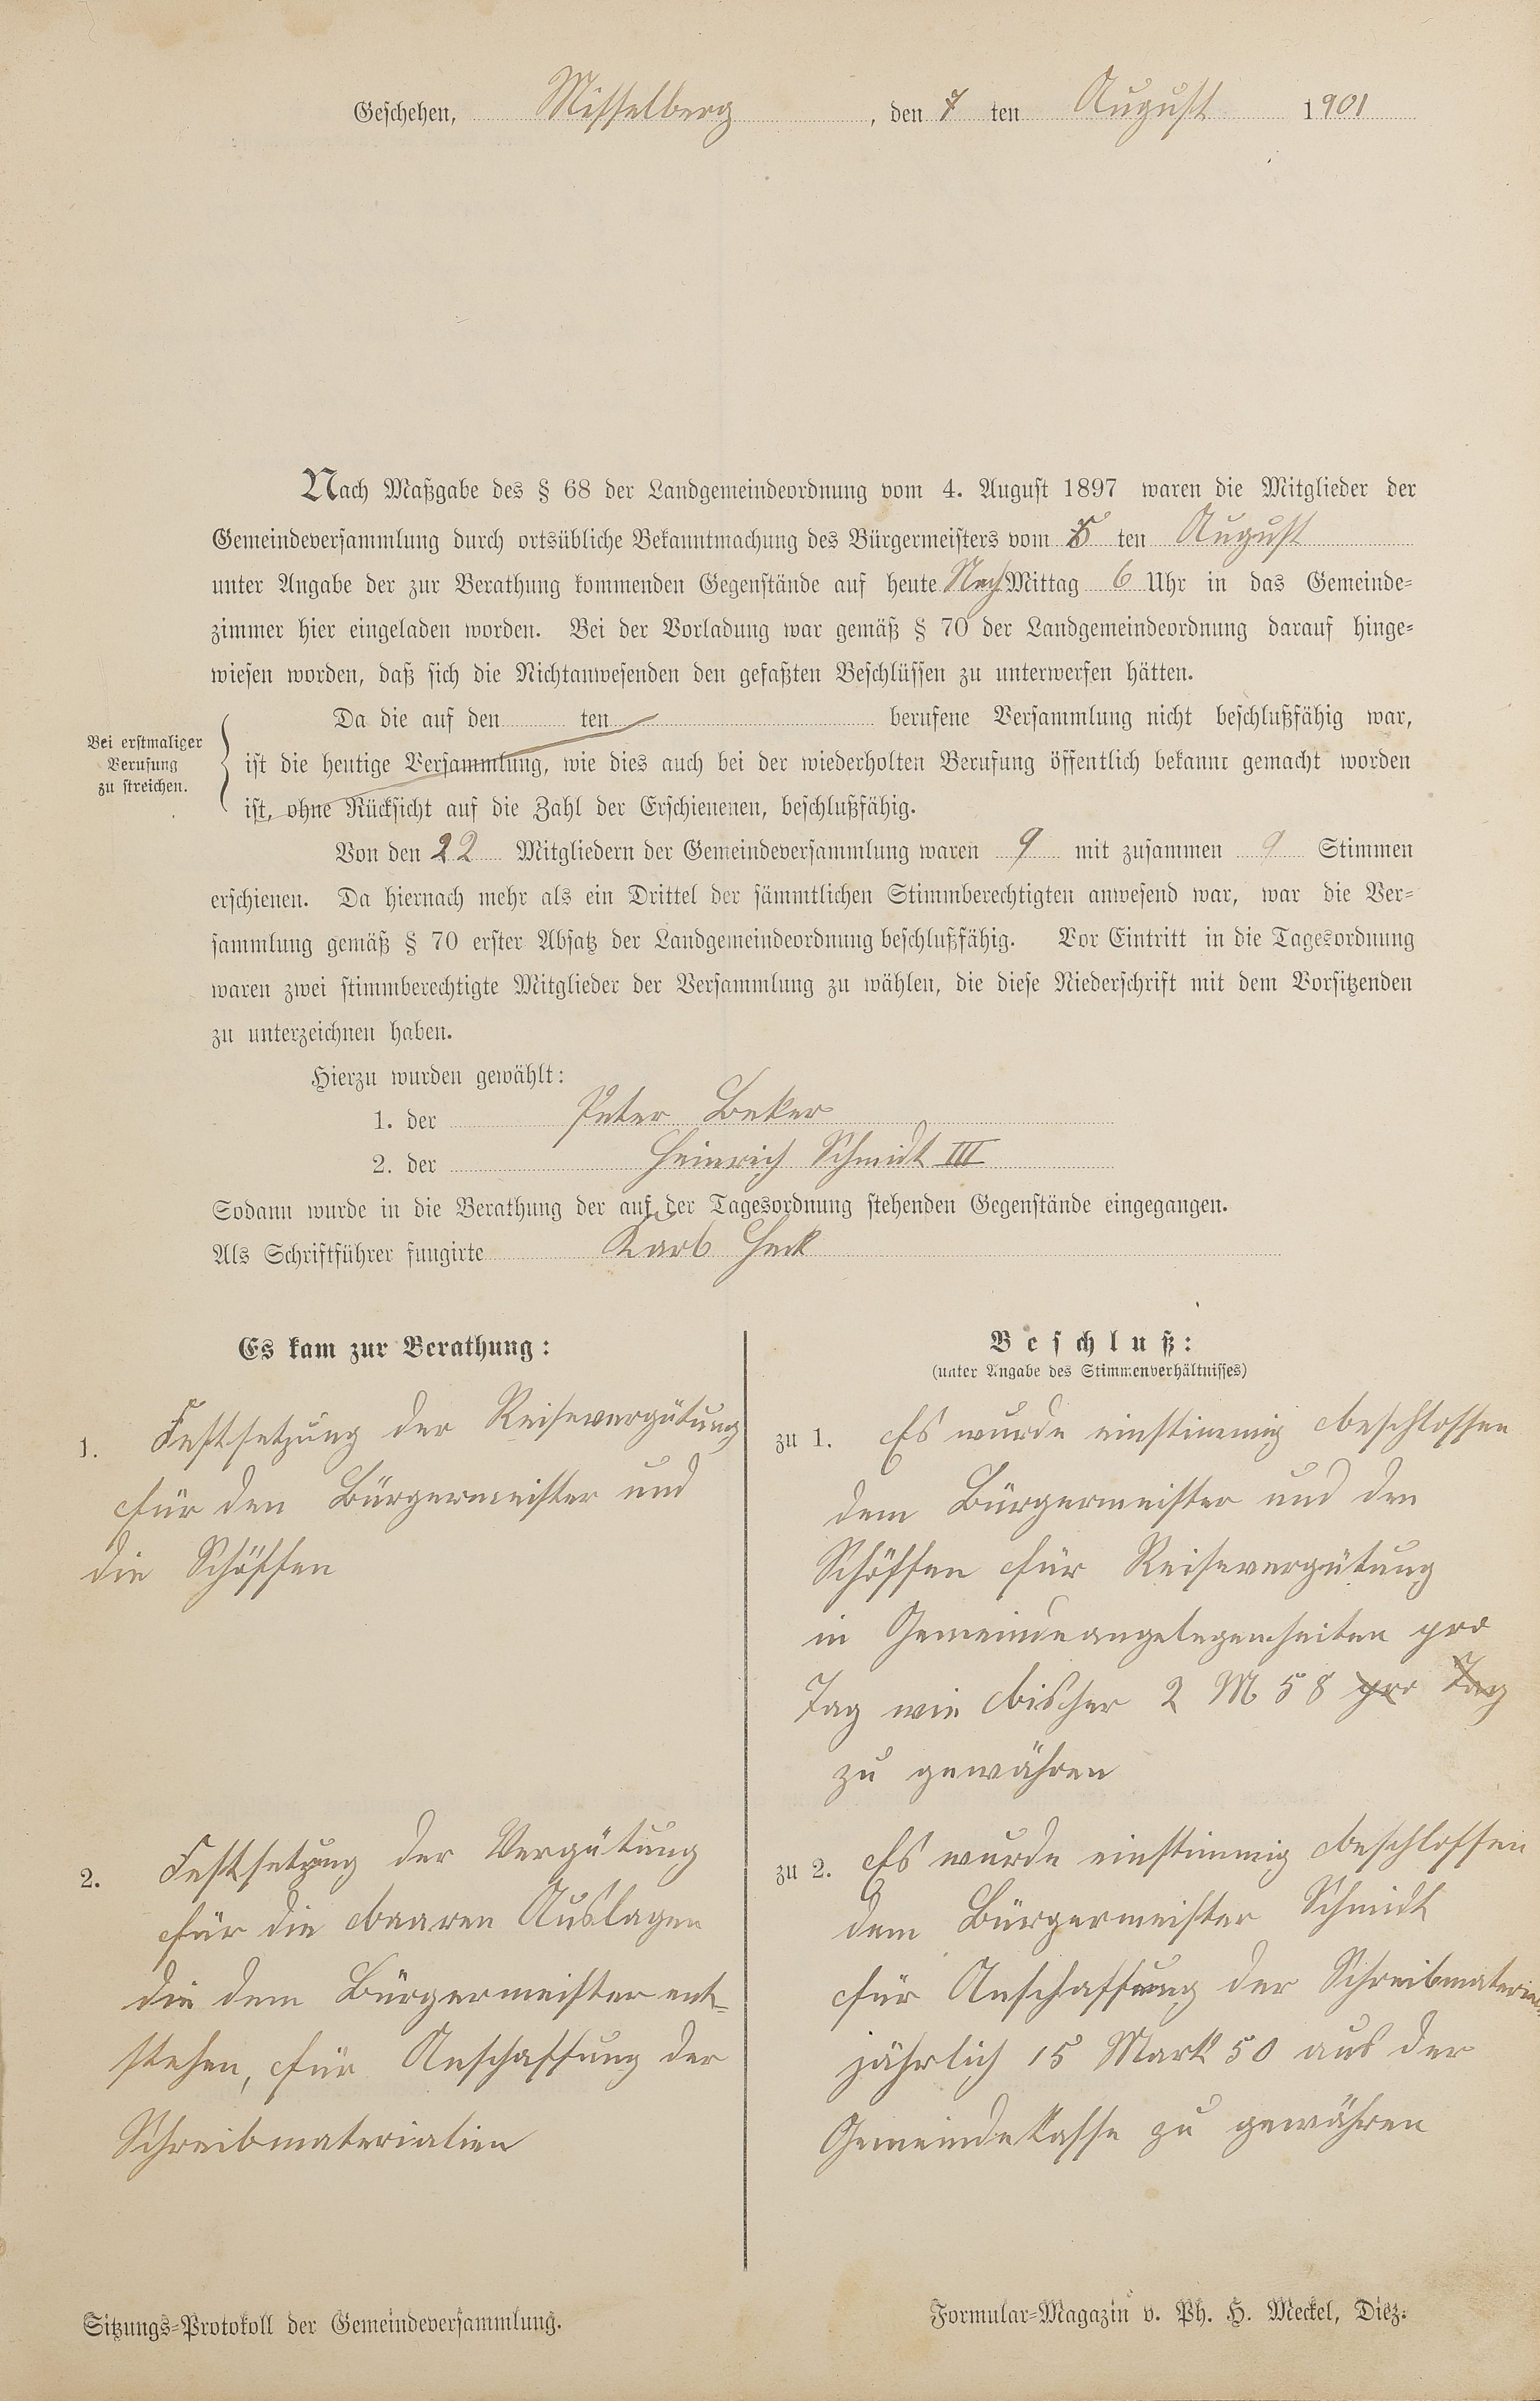 Geschehen, Misselberg, den 7 ten August 1901
Nach Maßgabe des § 68 der Landgemeindeordnung vom 4. August 1897 waren die Mitglieder der
Gemeindeversammlung durch ortsübliche Bekanntmachung des Bürgermeisters vom 5 ten August
unter Angabe der zur Berathung kommenden Gegenstände auf heute NachMittag 6 Uhr in das Gemeinde-
zimmer hier eingeladen worden. Bei der Vorladung war gemäß § 70 der Landgemeindeordnung darauf hinge-
wiesen worden, daß sich die Nichtanwesenden den gefaßten Beschlüssen zu unterwerfen hätten.
Bei erstmaliger
Berufung
zu streichen.
Da die auf den ten berufene Versammlung nicht beschlußfähig war,
ist die heutige Versammlung, wie dies auch bei der wiederholten Berufung öffentlich bekannt gemacht worden
ist, ohne Rücksicht auf die Zahl der Erschienenen, beschlußfähig.
Von den 22 Mitgliedern der Gemeindeversammlung waren 9 mit zusammen 9 Stimmen
erschienen. Da hiernach mehr als ein Drittel der sämmtlichen Stimmberechtigten anwesend war, war die Ver-
sammlung gemäß § 70 erster Absatz der Landgemeindeordnung beschlußfähig. Vor Eintritt in die Tagesordnung
waren zwei stimmberechtigte Mitglieder der Versammlung zu wählen, die diese Niederschrift mit dem Vorsitzenden
zu unterzeichnen haben.
Hierzu wurden gewählt:
1. der Peter Beker
2. der Heinrich Schmidt III
Sodann wurde in die Berathung der auf der Tagesordnung stehenden Gegenstände eingegangen.
Als Schriftführer fungirte Karl Heck
Es kam zur Berathung:
1. Festsetzung der Reisevergütung
für den Bürgermeister und
die Schöffen
2. Festsetzung der Vergütung
für die baaren Auslagen
die dem Bürgermeister ent-
stehen, für Anschaffung der
Schreibmaterialien
Beschluß:
(unter Angabe des Stimmenverhältnisses)
zu 1. Es wurde einstimmig beschlossen
dem Bürgermeister und den
Schöffen für Reisevergütung
in Gemeindeangelegenheiten pro
Tag wie bisher 2 M 58 pro Tag
zu gewähren
zu 2. Es wurde einstimmig beschlossen
dem Bürgermeister Schmidt
für Anschaffung der Schreibmaterial
jährlich 15 Mark 50 aus der
Gemeindekasse zu gewähren
Sitzungs-Protokoll der Gemeindeversammlung.
Formular-Magazin v. Ph. H. Meckel, Diez.